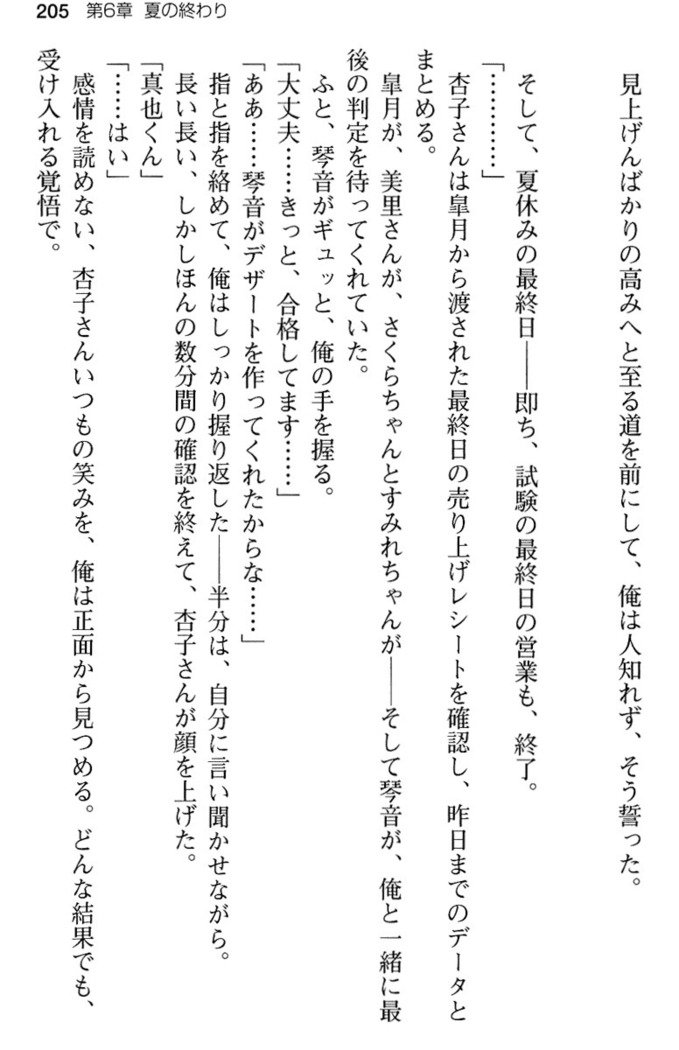 205 第6章 夏の終わり
見上げんばかりの高みへと至る道を前にして、俺は人知れず、そう誓った。
そして、夏休みの最終日――即ち、試験の最終日の営業も、終了。
「…………」
杏子さんは皐月から渡された最終日の売り上げレシートを確認し、昨日までのデータと
まとめる。
皐月が、美里さんが、さくらちゃんとすみれちゃんが――そして琴音が、俺と一緒に最
後の判定を待ってくれていた。
ふと、琴音がギュッと、俺の手を握る。
「大丈夫……きっと、合格してます……」
「ああ……琴音がデザートを作ってくれたからな……」
指と指を絡めて、俺はしっかり握り返した――半分は、自分に言い聞かせながら。
長い長い、しかしほんの数分間の確認を終えて、杏子さんが顔を上げた。
「真也くん」
「……はい」
感情を読めない、杏子さんいつもの笑みを、俺は正面から見つめる。どんな結果でも、
受け入れる覚悟で。